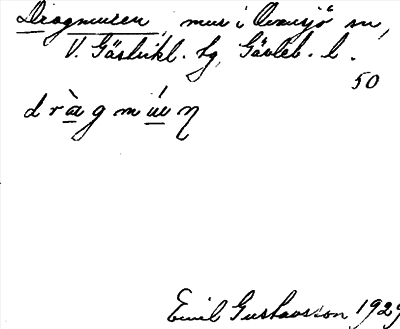 Dragmuren, mur i Ovansjö sn,
V. Gästrikl. hg, Gävleb. l.
50
dràgmúŋ
Emil Gustavsson 1929